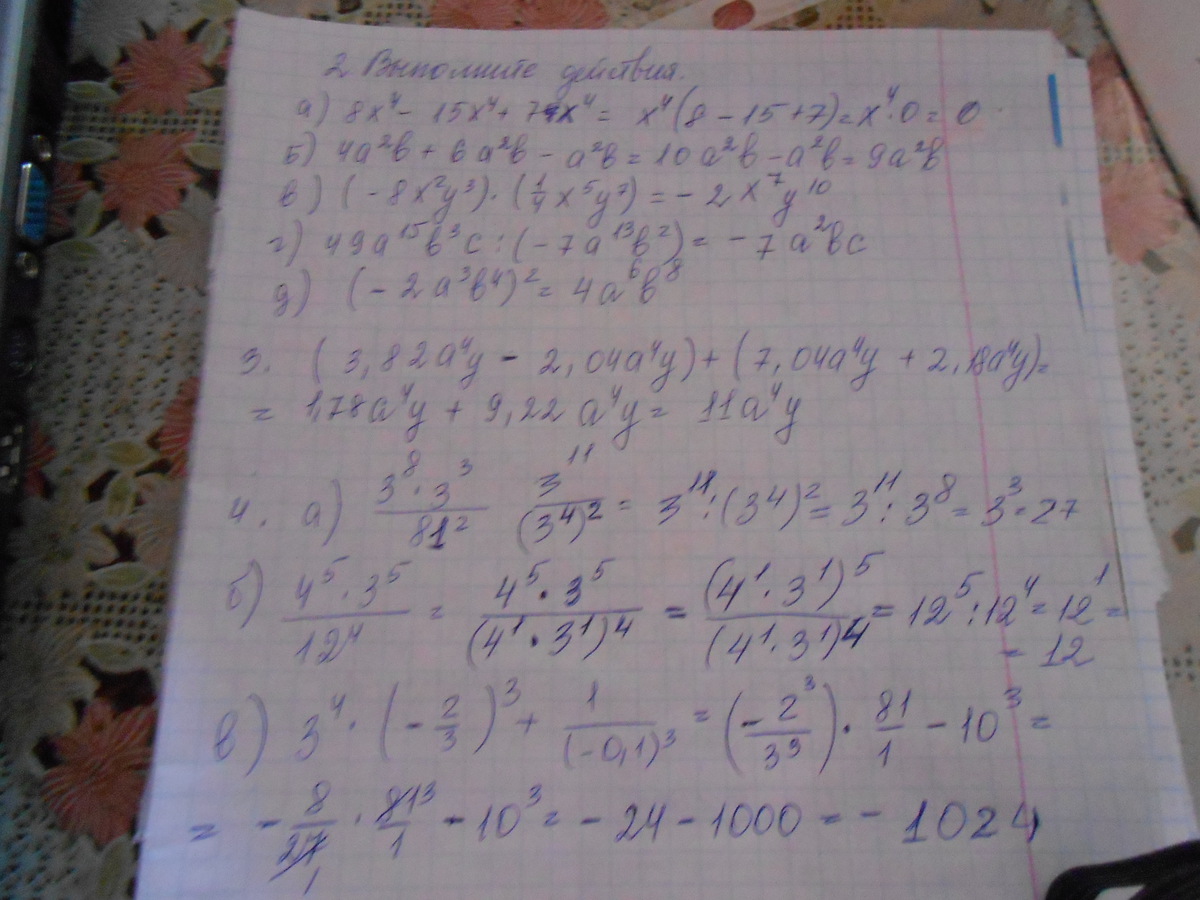 2 Выполните действия.
а) 8x⁴ - 15x⁴ + 7x⁴ = x⁴(8 - 15 + 7) = x⁴·0 = 0
б) 4a²b + 6a²b - a²b = 10a²b - a²b = 9a²b
в) (-8x²y³)·(1/4 x⁵y⁷) = -2x⁷y¹⁰
г) 49a¹⁵b³c : (-7a¹³b²) = -7a²bc
д) (-2a³b⁴)² = 4a⁶b⁸
3. (3,82a⁴y - 2,04a⁴y) + (7,04a⁴y + 2,18a⁴y) =
= 1,78a⁴y + 9,22a⁴y = 11a⁴y
4. а) 3⁸·3³/81² 3¹¹/(3⁴)² = 3¹¹:(3⁴)² = 3¹¹:3⁸ = 3³ = 27
б) 4⁵·3⁵/12⁴ = 4⁵·3⁵/(4¹·3¹)⁴ = (4¹·3¹)⁵/(4¹·3¹)⁴ = 12⁵:12⁴ = 12¹ =
= 12
в) 3⁴·(-2/3)³ + 1/(-0,1)³ = (-2³/3³)·81/1 - 10³ =
= -8/27·81/1 - 10³ = -24 - 1000 = -1024